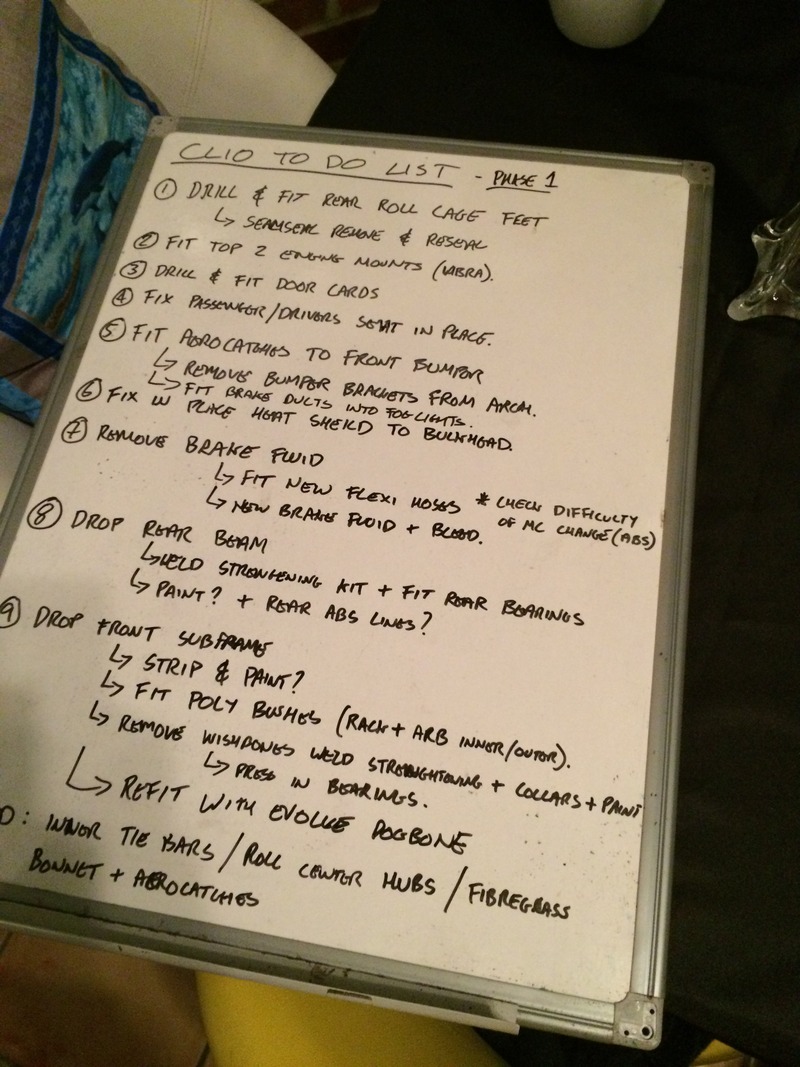 CLIO TO DO LIST - PHASE 1
① DRILL & FIT REAR ROLL CAGE FEET
↳ SEAMSEAL REMOVE & RESEAL
② FIT TOP 2 ENGING MOUNTS (VIBRA).
③ DRILL & FIT DOOR CARDS
④ FIX PASSENGER/DRIVERS SEAT IN PLACE.
⑤ FIT AEROCATCHES TO FRONT BUMPER
↳ REMOVE BUMPER BRACKETS FROM ARCH.
↳ FIT BRAKE DUCTS INTO FOGLIGHTS.
⑥ FIX IN PLACE HEAT SHEILD TO BULKHEAD.
⑦ REMOVE BRAKE FLUID
↳ FIT NEW FLEXI HOSES * CHECK DIFFICULTY
↳ NEW BRAKE FLUID + BLEED. OF MC CHANGE (ABS)
⑧ DROP REAR BEAM
↳ WELD STRENGENING KIT + FIT REAR BEARINGS
↳ PAINT? + REAR ABS LINES?
⑨ DROP FRONT SUBFRAME
↳ STRIP & PAINT?
↳ FIT POLY BUSHES (RACK + ARB INNER/OUTER).
↳ REMOVE WISHBONES WELD STRENGHTENING + COLLARS + PAINT
↳ PRESS IN BEARINGS.
↳ REFIT WITH EVOLVE DOGBONE
: INNER TIE BARS / ROLL CENTER HUBS / FIBREGRASS
BONNET + AEROCATCHES